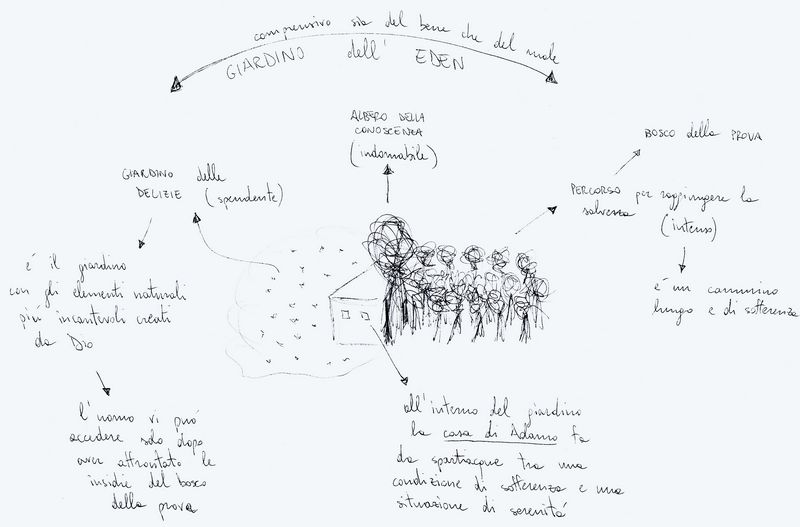 comprensivo sia del bene che del male
GIARDINO dell' EDEN
ALBERO DELLA
CONOSCENZA
(indomabile)
BOSCO della PROVA
GIARDINO delle
DELIZIE (spendente)
PERCORSO per raggiungere la
salvezza
(intenso)
è il giardino
con gli elementi naturali
più incantevoli creati
da Dio
è un cammino
lungo e di sofferenza
l'uomo vi può
accedere solo dopo
aver affrontato le
insidie del bosco
della prova
all'interno del giardino
la casa di Adamo fa
da spartiacque tra una
condizione di sofferenza e una
situazione di serenità